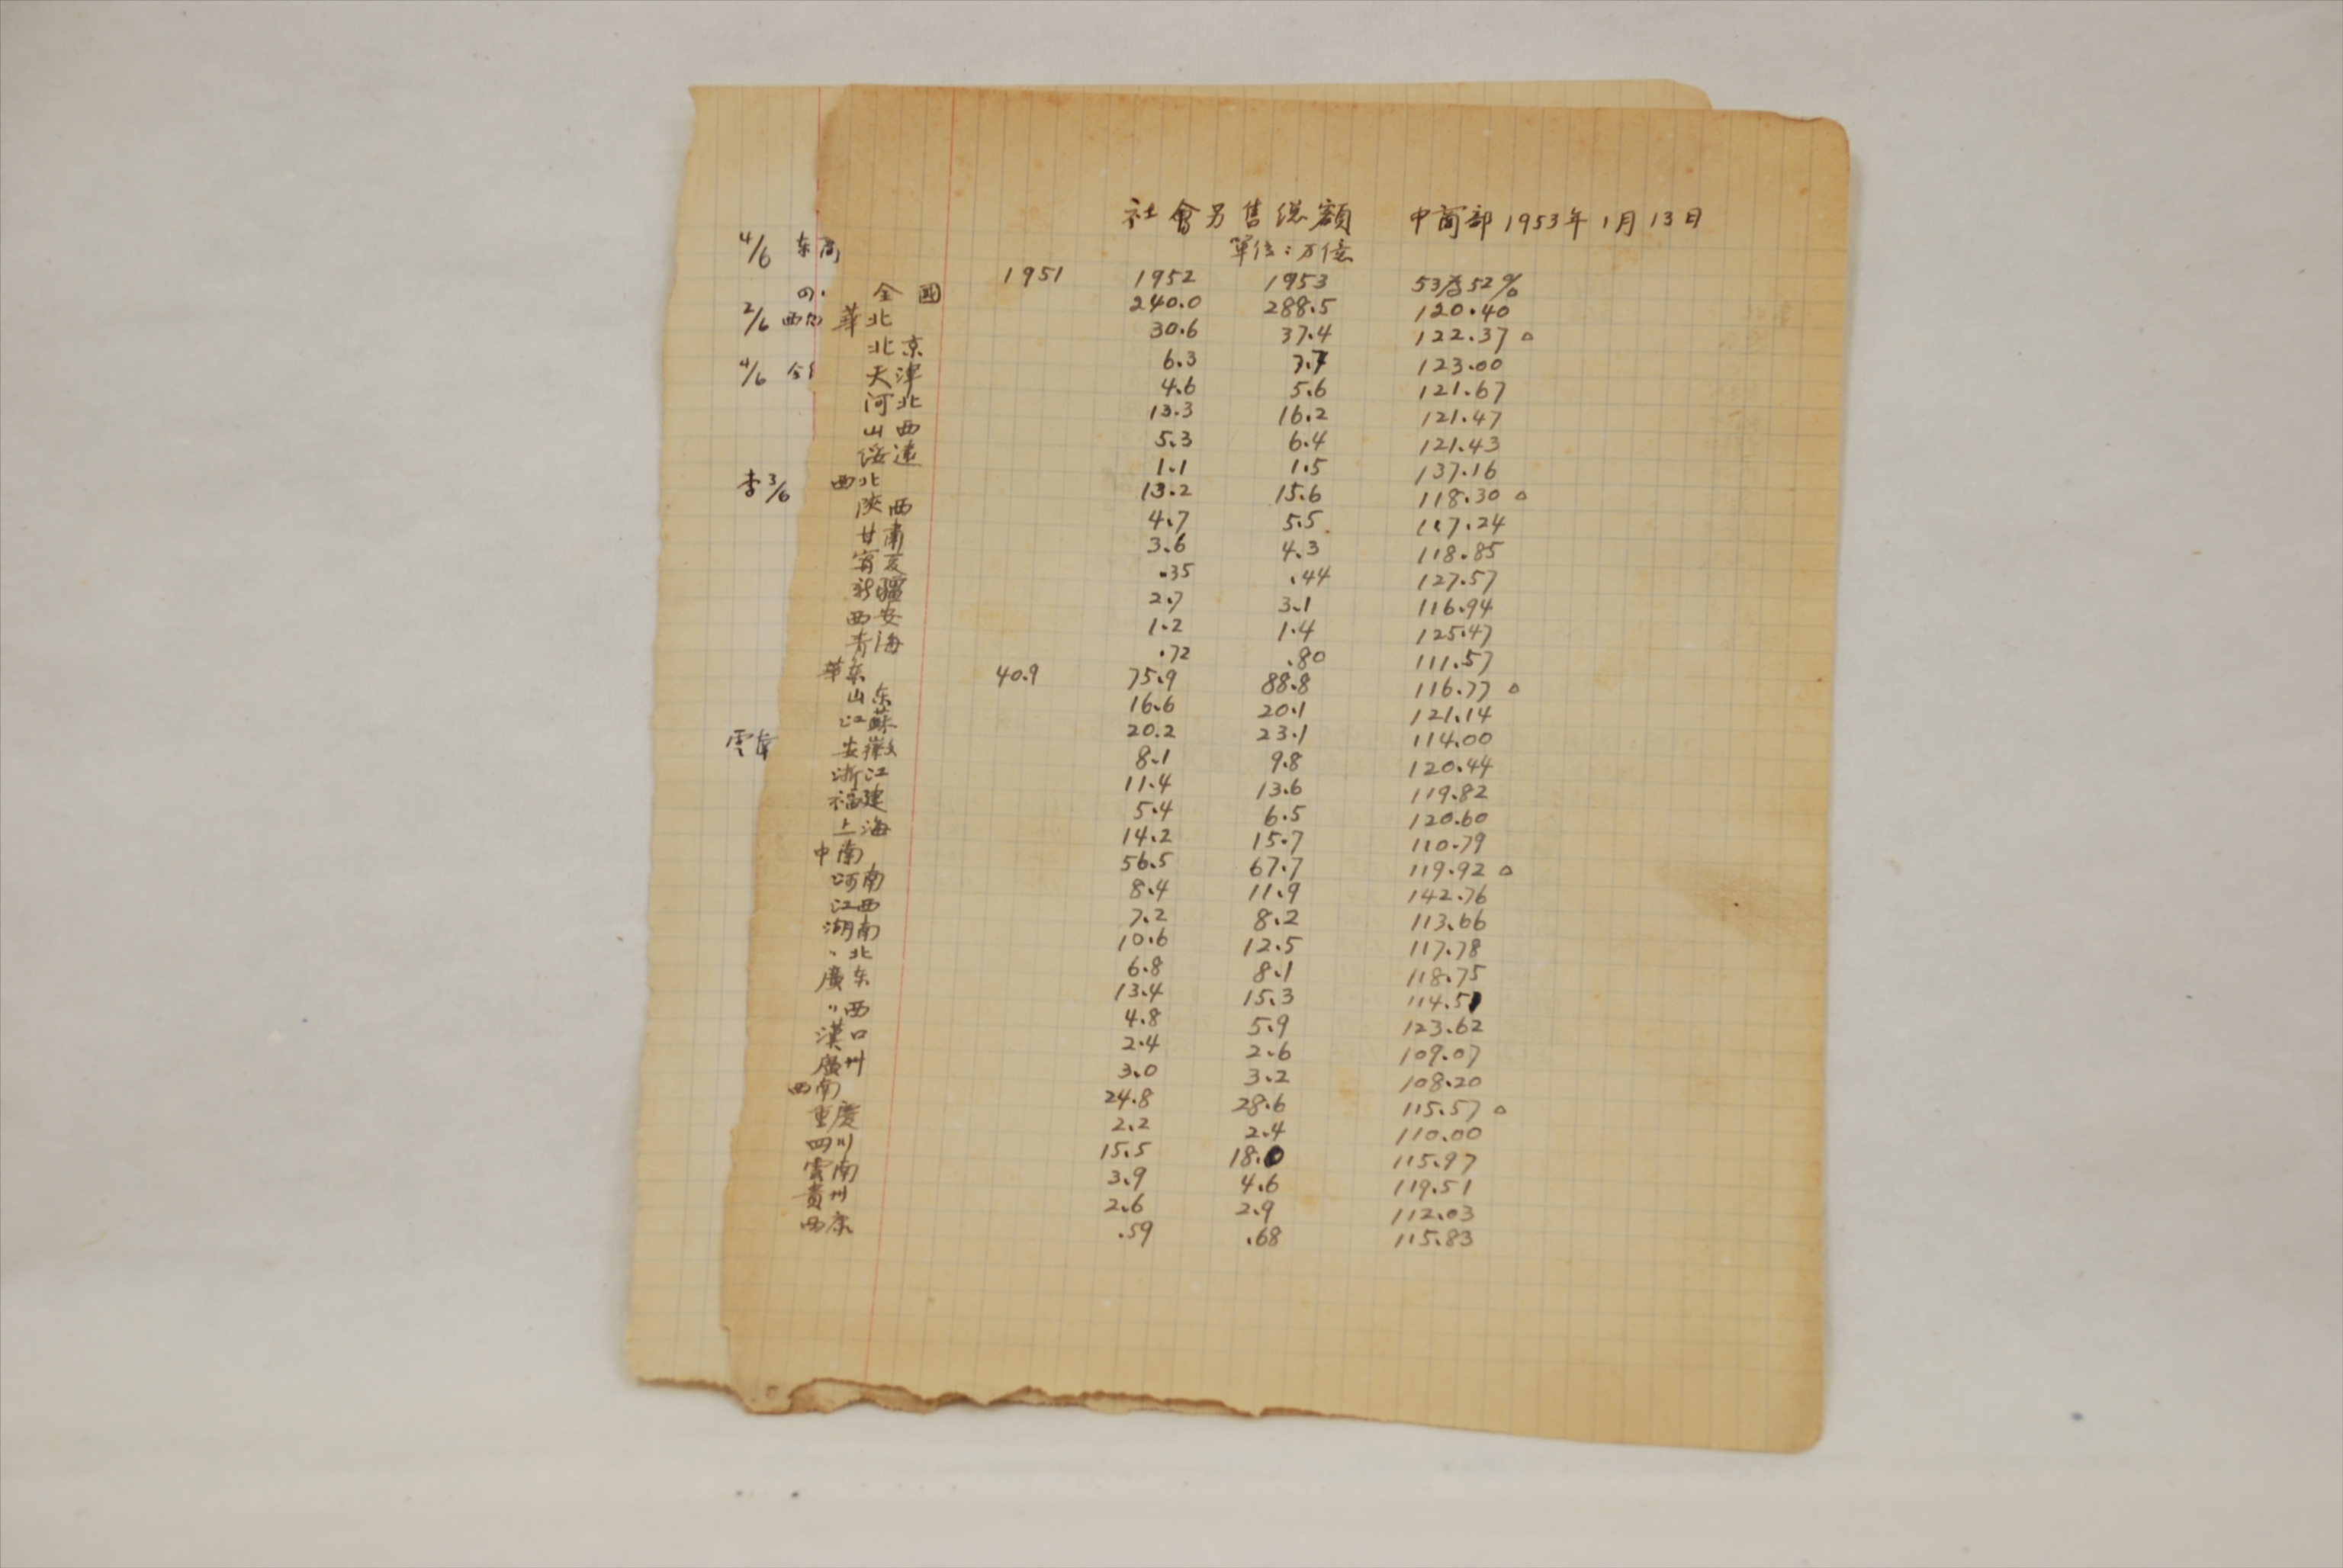 社會另售总額 中商部1953年1月13日
單位：万億
1951 1952 1953 53为52%
全國 240.0 288.5 120.40
華北 30.6 37.4 122.37 △
北京 6.3 7.7 123.00
天津 4.6 5.6 121.67
河北 13.3 16.2 121.47
山西 5.3 6.4 121.43
绥远 1.1 1.5 137.16
西北 13.2 15.6 118.30 △
陝西 4.7 5.5 117.24
甘肅 3.6 4.3 118.85
寧夏 .35 .44 127.57
新疆 2.7 3.1 116.94
西安 1.2 1.4 125.47
青海 .72 .80 111.57
華东 40.9 75.9 88.8 116.77 △
山东 16.6 20.1 121.14
江蘇 20.2 23.1 114.00
安徽 8.1 9.8 120.44
浙江 11.4 13.6 119.82
福建 5.4 6.5 120.60
上海 14.2 15.7 110.79
中南 56.5 67.7 119.92 △
河南 8.4 11.9 142.76
江西 7.2 8.2 113.66
湖南 10.6 12.5 117.78
〃北 6.8 8.1 118.75
廣东 13.4 15.3 114.51
〃西 4.8 5.9 123.62
漢口 2.4 2.6 109.07
廣州 3.0 3.2 108.20
西南 24.8 28.6 115.57 △
重慶 2.2 2.4 110.00
四川 15.5 18.0 115.97
雲南 3.9 4.6 119.51
貴州 2.6 2.9 112.03
西康 .59 .68 115.83
4/6 东
2/6 西
4/6
李3/6